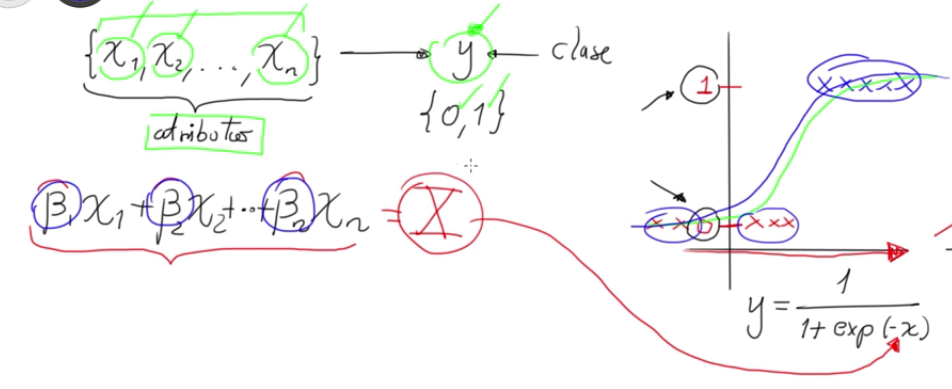 {x₁, x₂, ..., xₙ} → y ← clase
atributos
{0,1}
β₁x₁+β₂x₂+...+βₙxₙ = X
1
x x 0 x x x
x x x x x
y = 1 / (1 + exp(-x))